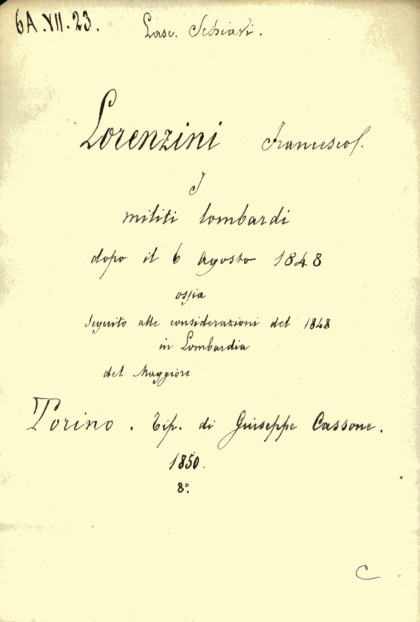 6A.VII.23.
Lasc. Schiavi.
Lorenzini Francesco.
I
militi lombardi
dopo il 6 agosto 1848
ossia
Seguito alle considerazioni del 1848
in Lombardia
del Maggiore
Torino. Tip. di Giuseppe Cassone.
1850.
8°.
C